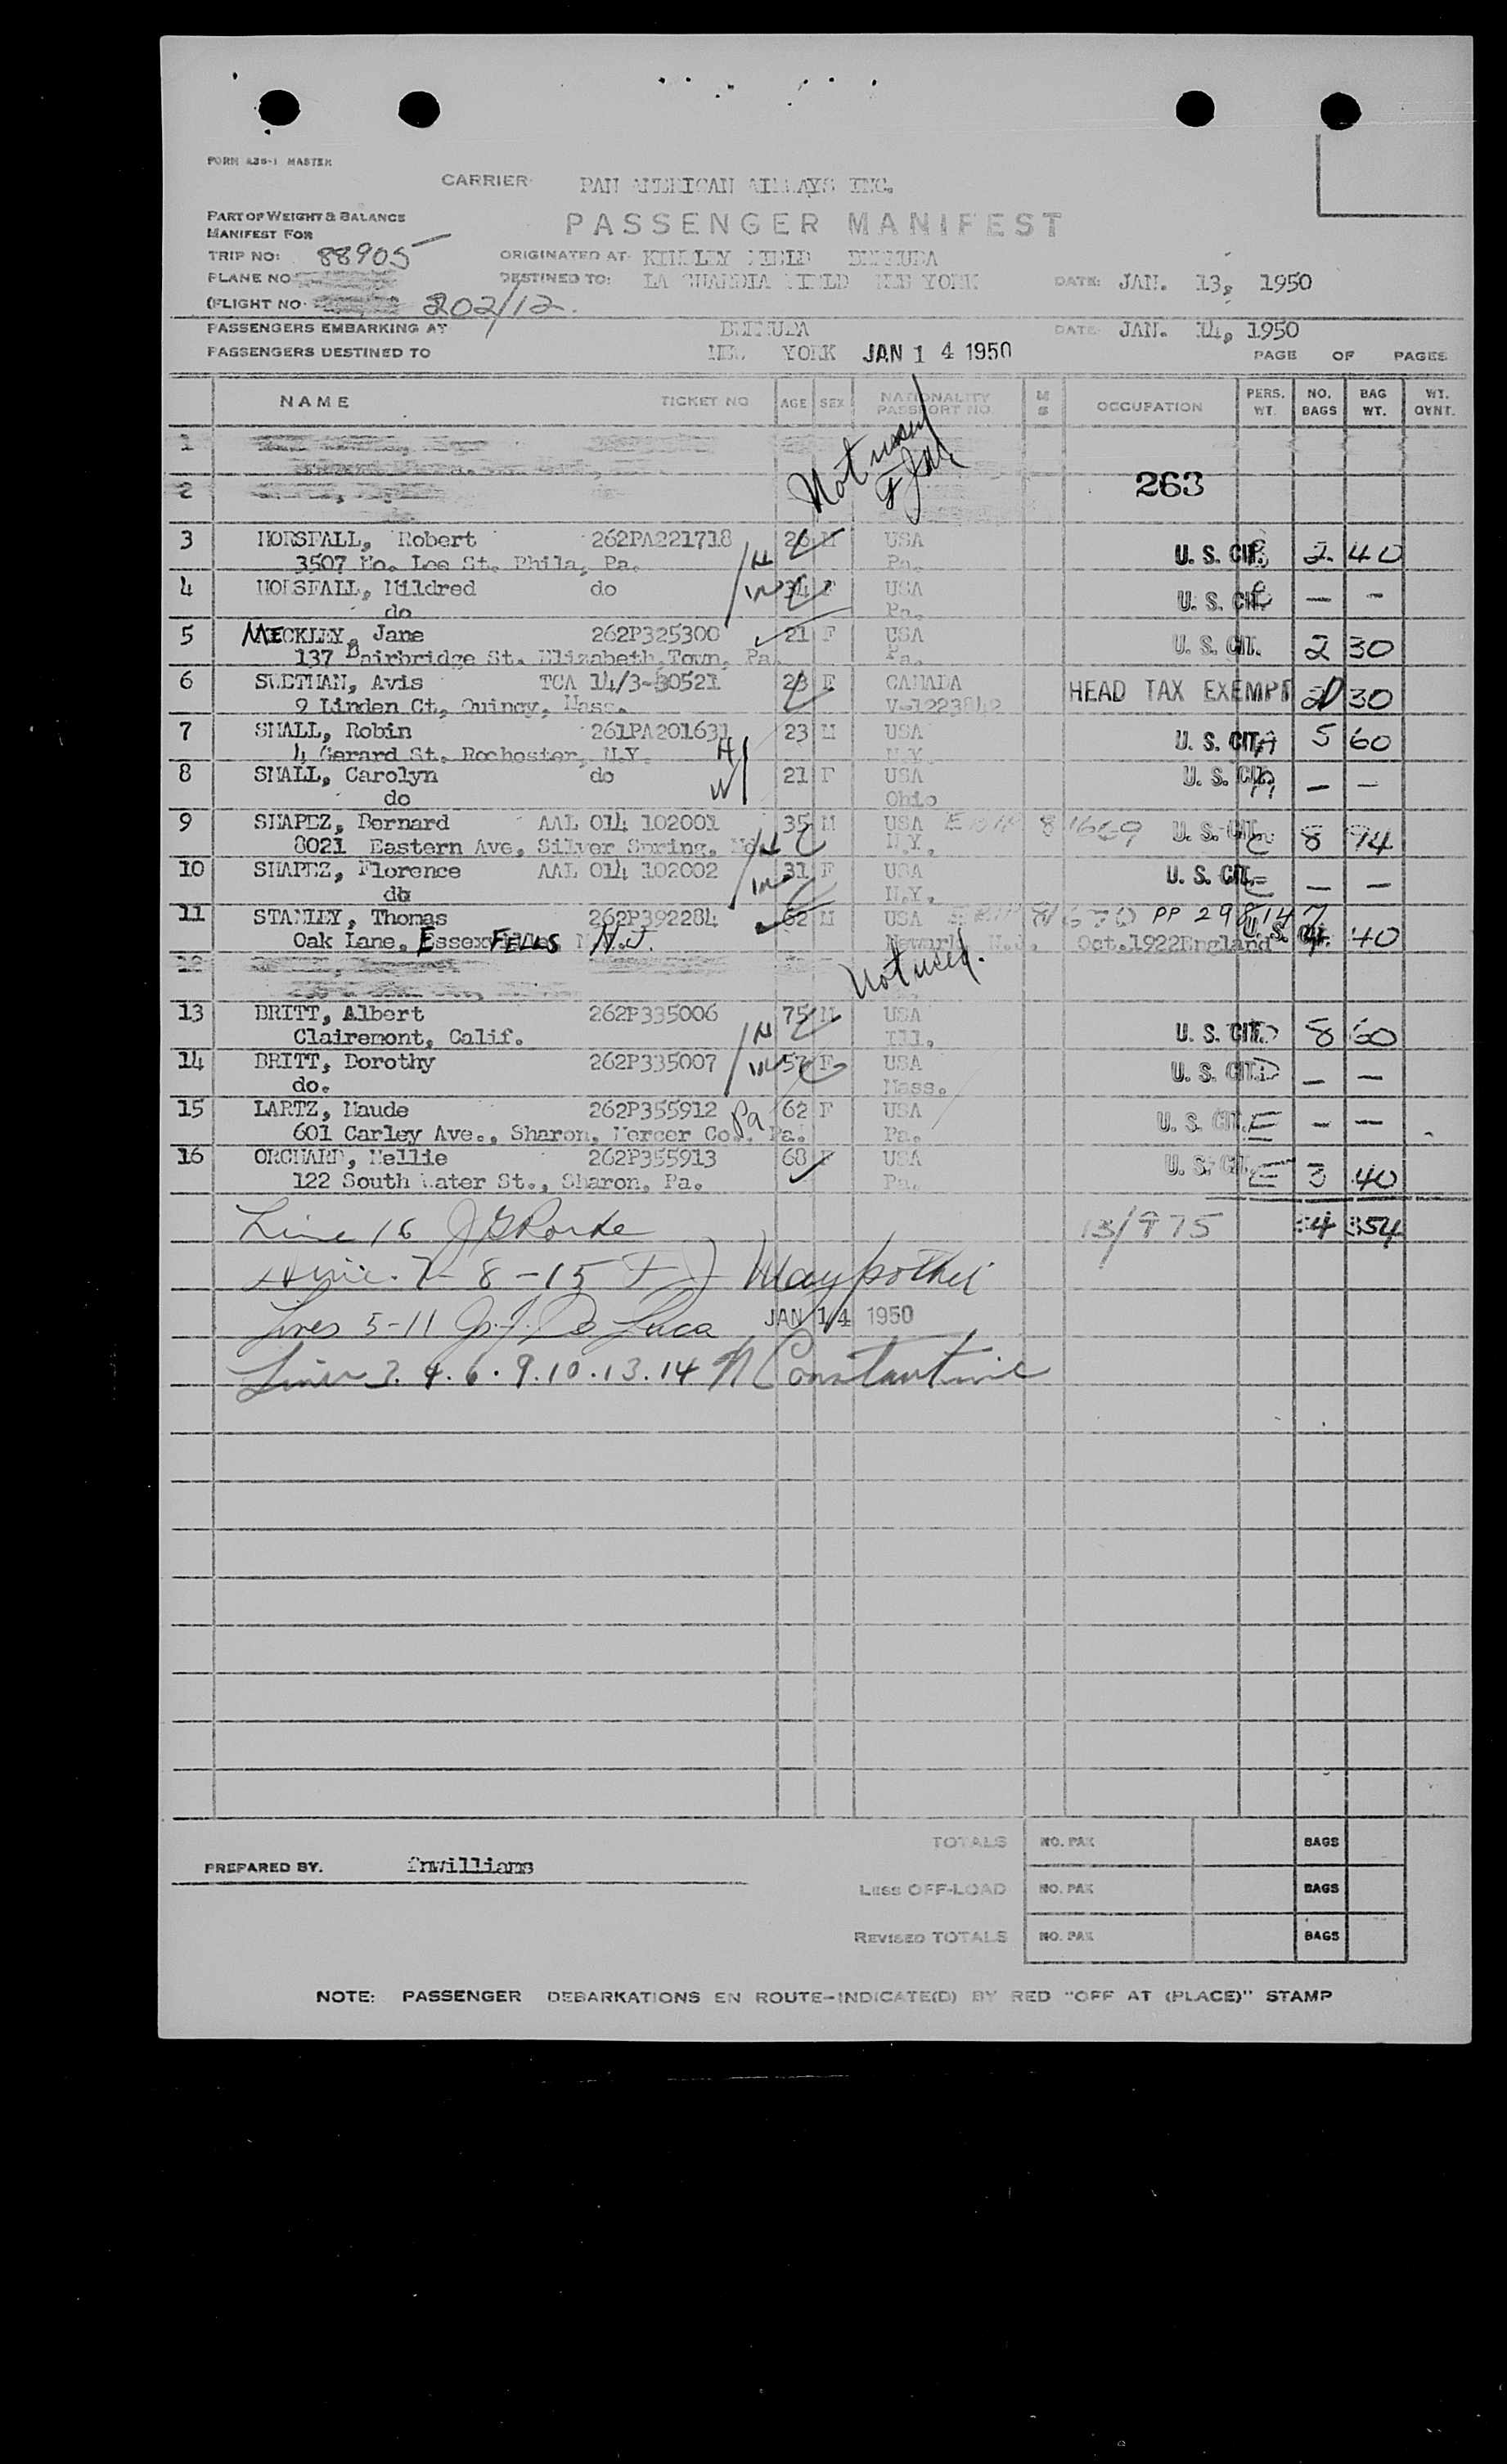 FORM 436-1 MASTER
CARRIER: PAN AMERICAN AIRWAYS INC.
PART OF WEIGHT & BALANCE
PASSENGER MANIFEST
MANIFEST FOR
TRIP NO: 88905
ORIGINATED AT KINDLEY FIELD BERMUDA
PLANE NO
DESTINED TO: LA GUARDIA FIELD NEW YORK DATE: JAN. 13, 1950
(FLIGHT NO 202/12.
PASSENGERS EMBARKING AT BERMUDA DATE JAN. 14, 1950
PASSENGERS DESTINED TO NEW YORK JAN 14 1950 PAGE OF PAGES
NAME TICKET NO AGE SEX NATIONALITY PASSPORT NO. M S OCCUPATION PERS. WT. NO. BAGS BAG WT. WT. OVNT.
1
Not used
2 263
3 HORSFALL, Robert 262PA221718 26 M USA U. S. CIT. 2 40
3507 No. Lee St. Phila, Pa. H Pa.
4 HORSFALL, Mildred do 34 F USA U. S. CIT. — -
do W Pa.
5 MECKLEY, Jane 262P325300 21 F USA U. S. CIT. 2 30
137 Bairbridge St. Elizabeth,Town, Pa. Pa.
6 SLETHAN, Avis TCA 14/3-30521 28 F CANADA HEAD TAX EXEMPT 2 30
9 Linden Ct, Quincy, Mass. V-1223842
7 SMALL, Robin 261PA201631 23 M USA U. S. CIT. A 5 60
4 Gerard St. Rochester, N.Y. H N.Y.
8 SMALL, Carolyn do 21 F USA U. S. CIT. — —
do W Ohio
9 SHAPEZ, Bernard AAL 014 102001 35 M USA 81669 U. S. CIT. 8 94
8021 Eastern Ave, Silver Spring, Md. H N.Y.
10 SHAPEZ, Florence AAL 014 102002 31 F USA U. S. CIT. — —
do W N.Y.
11 STANLEY, Thomas 262P392284 62 M USA 81670 PP 298147
Oak Lane, Essex FELLS N.J. Newark, N.J. Oct.1922England U. S. CIT. 4 40
12
Not used.
13 BRITT, Albert 262P335006 75 M USA U. S. CIT. D 8 60
Clairemont, Calif. H Ill.
14 BRITT, Dorothy 262P335007 57 F USA U. S. CIT. D — —
do. W Mass.
15 LARTZ, Maude 262P355912 62 F USA U. S. CIT. E — —
601 Carley Ave., Sharon, Mercer Co., Pa. Pa Pa.
16 ORCHARD, Nellie 262P355913 68 F USA U. S. CIT. E 3 40
122 South Water St., Sharon, Pa. Pa.
Line 16 13/975 34 354
7- 8 -15
Lines 5-11 De Luca JAN 14 1950
Lines 3. 4. 6. 9. 10. 13. 14 N Constantine
TOTALS NO. PAX BAGS
PREPARED BY. fnwilliams
LESS OFF-LOAD NO. PAX BAGS
REVISED TOTALS NO. PAX BAGS
NOTE: PASSENGER DEBARKATIONS EN ROUTE-INDICATE(D) BY RED "OFF AT (PLACE)" STAMP